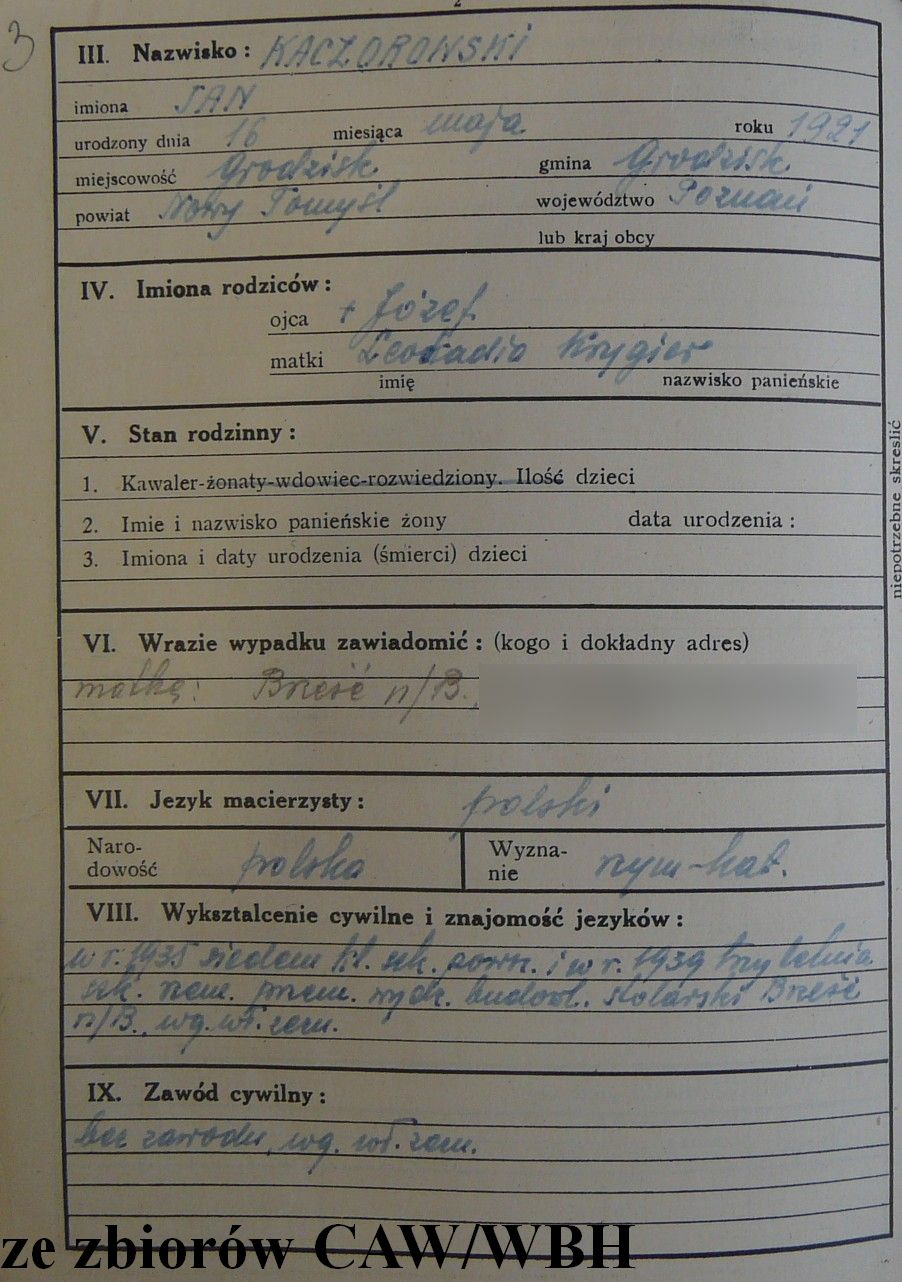 2
3
III. Nazwisko: KACZOROWSKI
imiona JAN
urodzony dnia 16 miesiąca maja roku 1921
miejscowość Grodzisk gmina Grodzisk
powiat Nowy Tomyśl województwo Poznań
lub kraj obcy
IV. Imiona rodziców:
ojca + Józef
matki Leokadia Krygier
imię nazwisko panieńskie
V. Stan rodzinny:
1. Kawaler-żonaty-wdowiec-rozwiedziony. Ilość dzieci
2. Imie i nazwisko panieńskie żony data urodzenia:
3. Imiona i daty urodzenia (śmierci) dzieci
niepotrzebne skreślić
VI. Wrazie wypadku zawiadomić: (kogo i dokładny adres)
matkę: Brześć n/B.
VII. Jezyk macierzysty: polski
Naro-
dowość polska
Wyzna-
nie rzym-kat.
VIII. Wykształcenie cywilne i znajomość jezyków:
w r. 1935 siedem kl. szk. powsz. i w r. 1939 trzyletnia
szk. rzem. przem. wydz. budowl. stolarski Brześć
n/B., wg. wł. zezn.
IX. Zawód cywilny:
bez zawodu, wg. wł. zezn.
ze zbiorów CAW/WBH